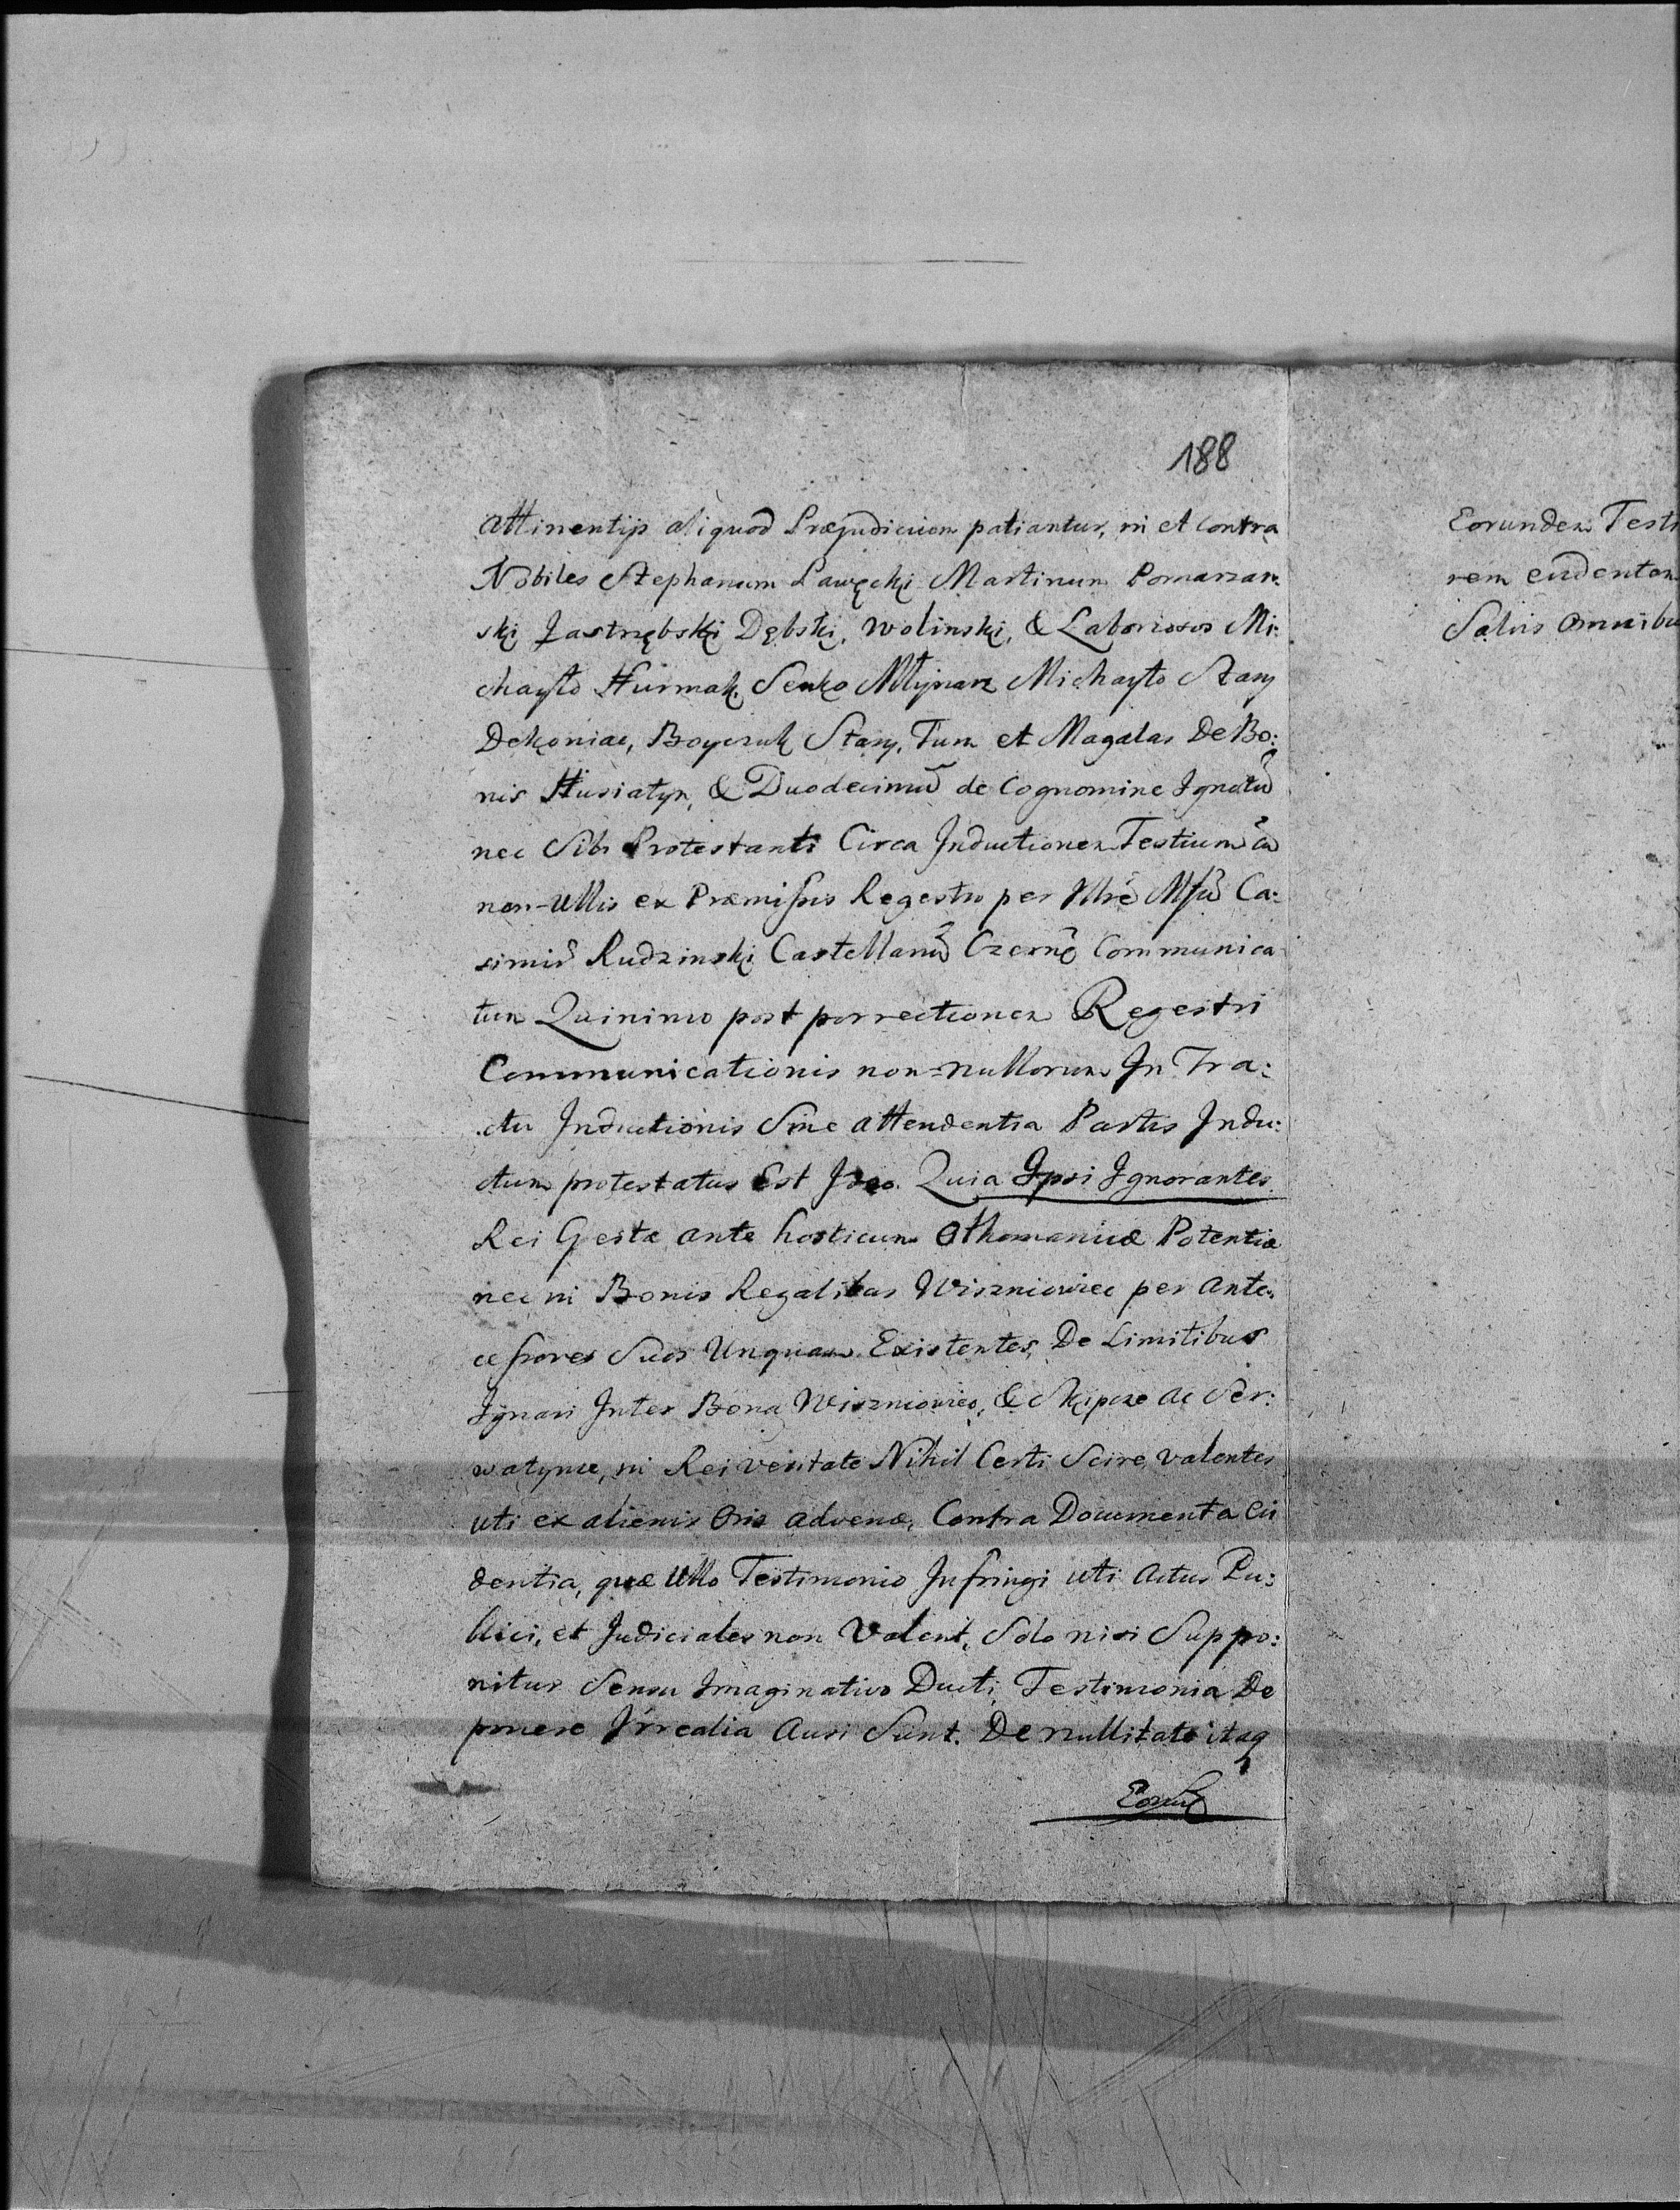 188
attinentijs aliquod Præjudicium patiantur, in et contra
Nobiles Stephanum Ławęcki Martinum Pomarzan:
ski Jastrzębski Dębski, Wolinski, & Laboriosos Mi:
chayło Hurmak, Senko Młynarz Michayło Stary
Dekoniac, Boyczuk Stary, Tum et Magalas De Bo:
nis Husiatyn, & Duodecimũ de Cognomine Ignotũ
nec Sibi Protestanti Circa Inductionem Testium cũ
non-Ullis ex Præmissis Regestro per Illrẽ Mfũ Ca:
simirũ Rudzinski Castellanũ Czernẽ Communica
tum Quinimo post porrectionem Regestri
Communicationis non=nullorum In Tra:
ctu Inductionis Sine attendentia Partis Indu:
ctum protestatus Est Ideo. Quia Ipsi Ignorantes
Rei Gestæ ante hosticum Othomanicæ Potentiæ
nec in Bonis Regalibus Wiszniowiec per Ante:
cessores Suos Unquam Existentes, De Limitibus
Ignari Inter Bona Wiszniowiec, & Skipcze ac Ser:
watynce, in Rei veritate Nihil Certi Scire valentes
uti ex alienis Oris advenæ, Contra Documenta Evi
dentia, quæ Ullo Testimonio Infringi uti Actus Pu:
blici, et Judiciales non Valent, Solo nisi Suppo:
nitur Sensu Imaginativo Ducti Testimonia De
ponere Irrealia Ausi Sunt. De nullitate itaq
Eorund
Eorundem Testi
rem evidentem
Salvis Omnibu